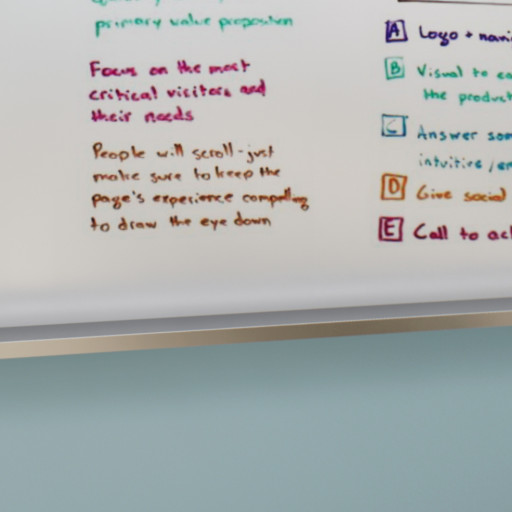 primary value proposition
Focus on the most
critical visitors and
their needs
People will scroll-just
make sure to keep the
page's experience compelling
to draw the eye down
A Logo +
B Visual to
the product
C Answer
intuitive /
D Give social
E Call to